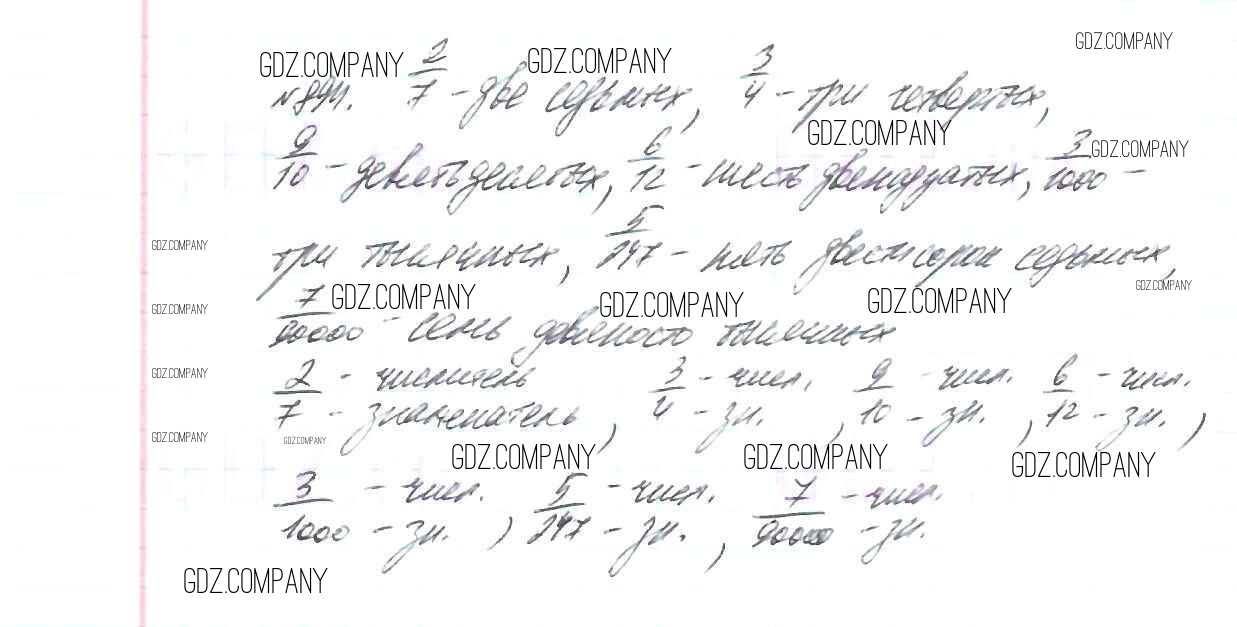 GDZ.COMPANY GDZ.COMPANY GDZ.COMPANY
№891. 2/7 - две седьмых, 3/4 - три четвертых,
GDZ.COMPANY
9/10 - девять десятых, 6/12 - шесть двенадцатых, 3/1000 - GDZ.COMPANY
GDZ.COMPANY
три тысячных, 5/247 - пять двести сорок седьмых,
GDZ.COMPANY
GDZ.COMPANY GDZ.COMPANY GDZ.COMPANY GDZ.COMPANY
7/90000 - семь девяносто тысячных
GDZ.COMPANY
2 - числитель 3 - числ. 9 - числ. 6 - числ.
7 - знаменатель, 4 - зн. , 10 - зн. , 12 - зн. ,
GDZ.COMPANY GDZ.COMPANY GDZ.COMPANY GDZ.COMPANY GDZ.COMPANY
3 - числ. 5 - числ. 7 - числ.
1000 - зн. , 247 - зн. , 90000 - зн.
GDZ.COMPANY